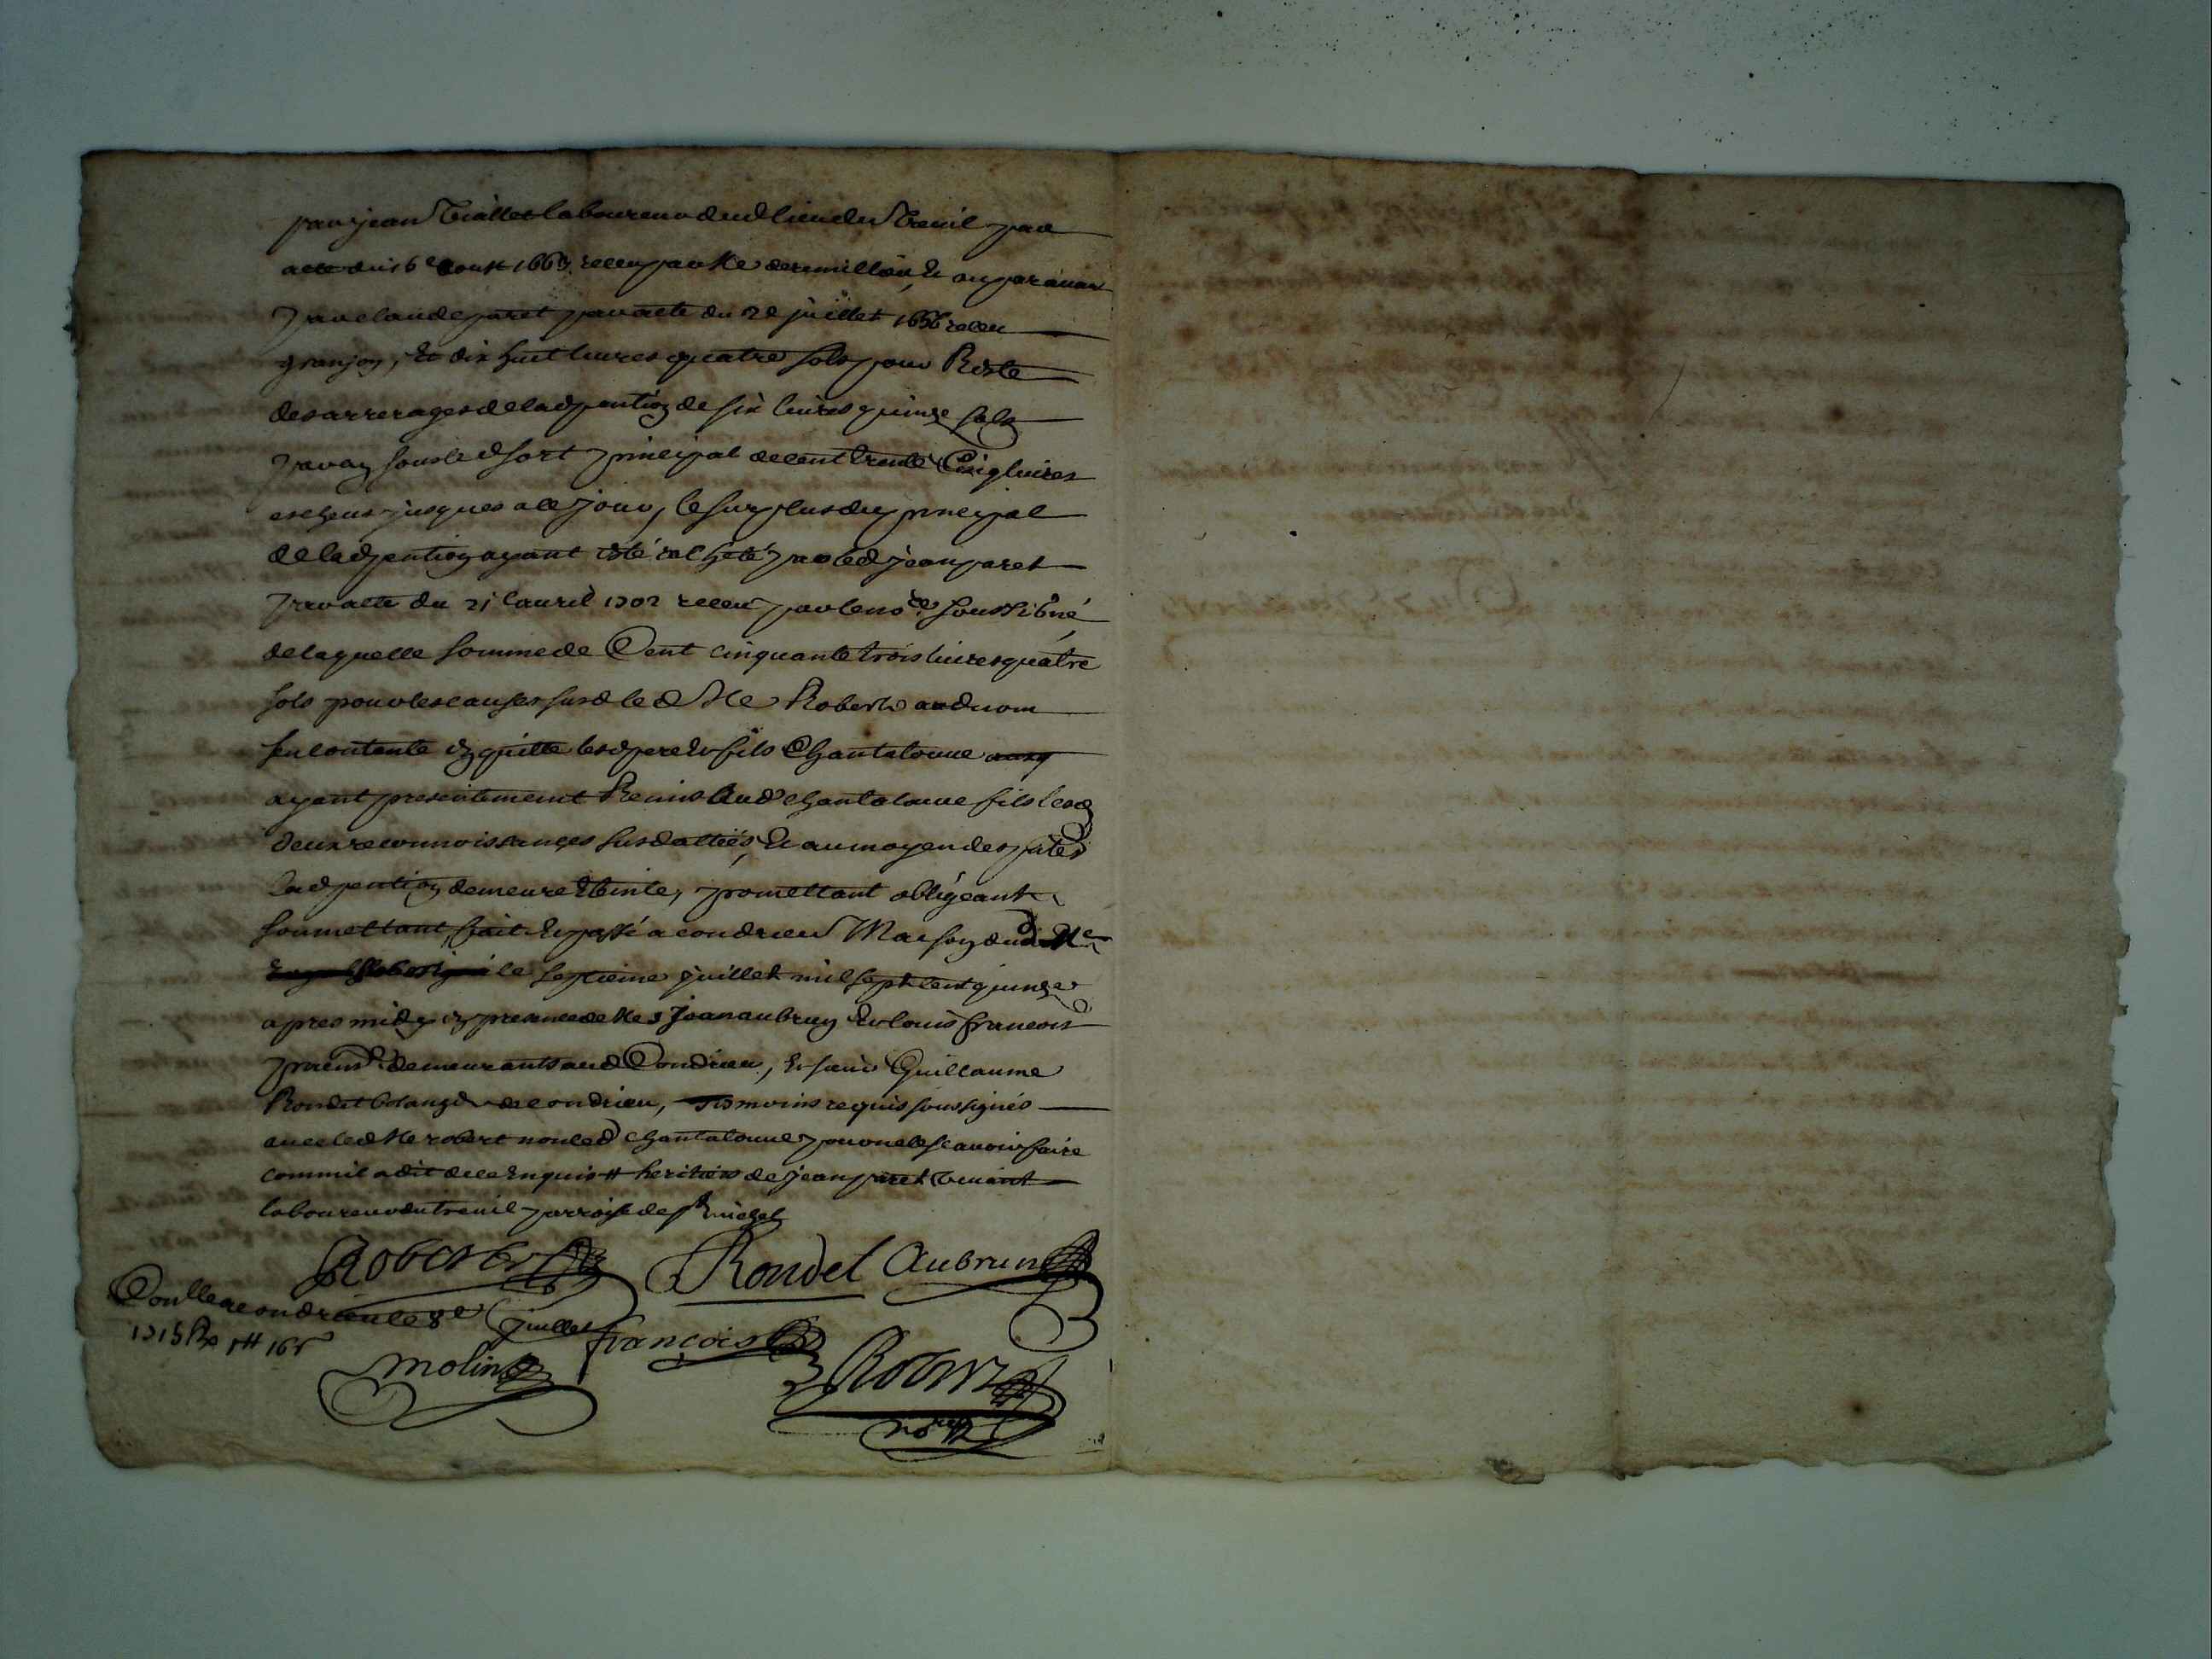 par jean Triallet laboureur dud lieu du Treuil par
acte du 16e aoust 1669 receu par Me deremillieu, et auparavant
par claude paret par acte du 22 juillet 1656 receu
granjon, Et dix huit livres quatre sols pour Reste
des arrerages de lad pention de six livres quinze sols
par an sous le d sort principal de cent trente Cinq livres
escheus jusques a ce jour, le surplus du principal
de lad pention ayant esté rachété par led jean paret
par acte du 21 avril 1702 receu par le nore soussigné
de laquelle somme de Cent cinquante trois livres quatre
sols pour les causes susd le d Me Robert aud nom
sen contente en quitte lesd pere et fils Chantaloue
ayant presentement Remis aud chantaloue fils lesd
deux reconnoissances susdattées, Et au moyen des ptes
Lad pention demeure Eteinte, promettant obligeant
soumettant, fait Et passé a condrieu Maison dud Me
le septieme juillet mil sept cent quinze
apres midy en presence de Mes Jean aubrun Et louis francois
pratns demeurants aud Condrieu, Et sieur Guillaume
Rondet bolanger de condrieu, tesmoins requis soussignés
avec led Me robert non led chantaloue pour ne le scavoir faire
comm il a dit de ce Enquis # heritiers de jean paret vivant
laboureur du treuil parroisse de st michel
Robert Rondel Aubrun
Conlle a condrieu le 8e juillet
1715 Rx 1# 16s
françois
molin
Robert
nore